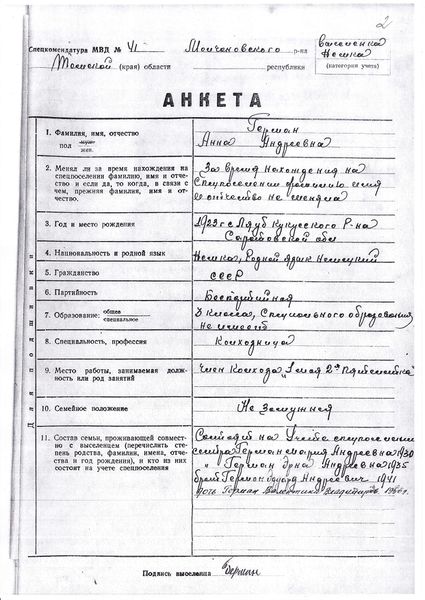 2
Спецкомендатура МВД № 41 Молчановского р-на
выселенка
Немка
Томской (края) области республики (категория учета)
АНКЕТА
1. Фамилия, имя, отчество
пол муж. жен.
Герман
Анна Андреевна
2. Менял ли за время нахождения на
спецпоселении фамилию, имя и отче-
ство и если да, то когда, в связи с
чем, прежняя фамилия, имя и от-
чество.
За время нахождения на
Спецпоселении фамилию имя
и отчество не меняла
3. Год и место рождения
1923 г с Лауб Куккусского Р-на
Саратовской обл
4. Национальность и родной язык
Немка, Родной язык Немецкий
5. Гражданство
СССР
6. Партийность
Беспартийная
7. Образование: общее специальное
класса, Специального образования
не имеет
8. Специальность, профессия
Колхозница
9. Место работы, занимаемая долж-
ность или род занятий
Член Колхоза "1 мая 2я Пятилетка"
10. Семейное положение
Не замужняя
11. Состав семьи, проживающей совмест-
но с выселенцем (перечислить сте-
пень родства, фамилии, имена, отче-
ства и год рождения), и кто из них
состоит на учете спецпоселения
Состоят на Учёте спецпоселения
сестра Герман Мария Андреевна 1930
" Герман Эрна Андреевна 1935
брат Герман Эдуард Андреевич 1941
дочь Герман Валентина
Для подшивки в дело
Подпись выселенца Герман